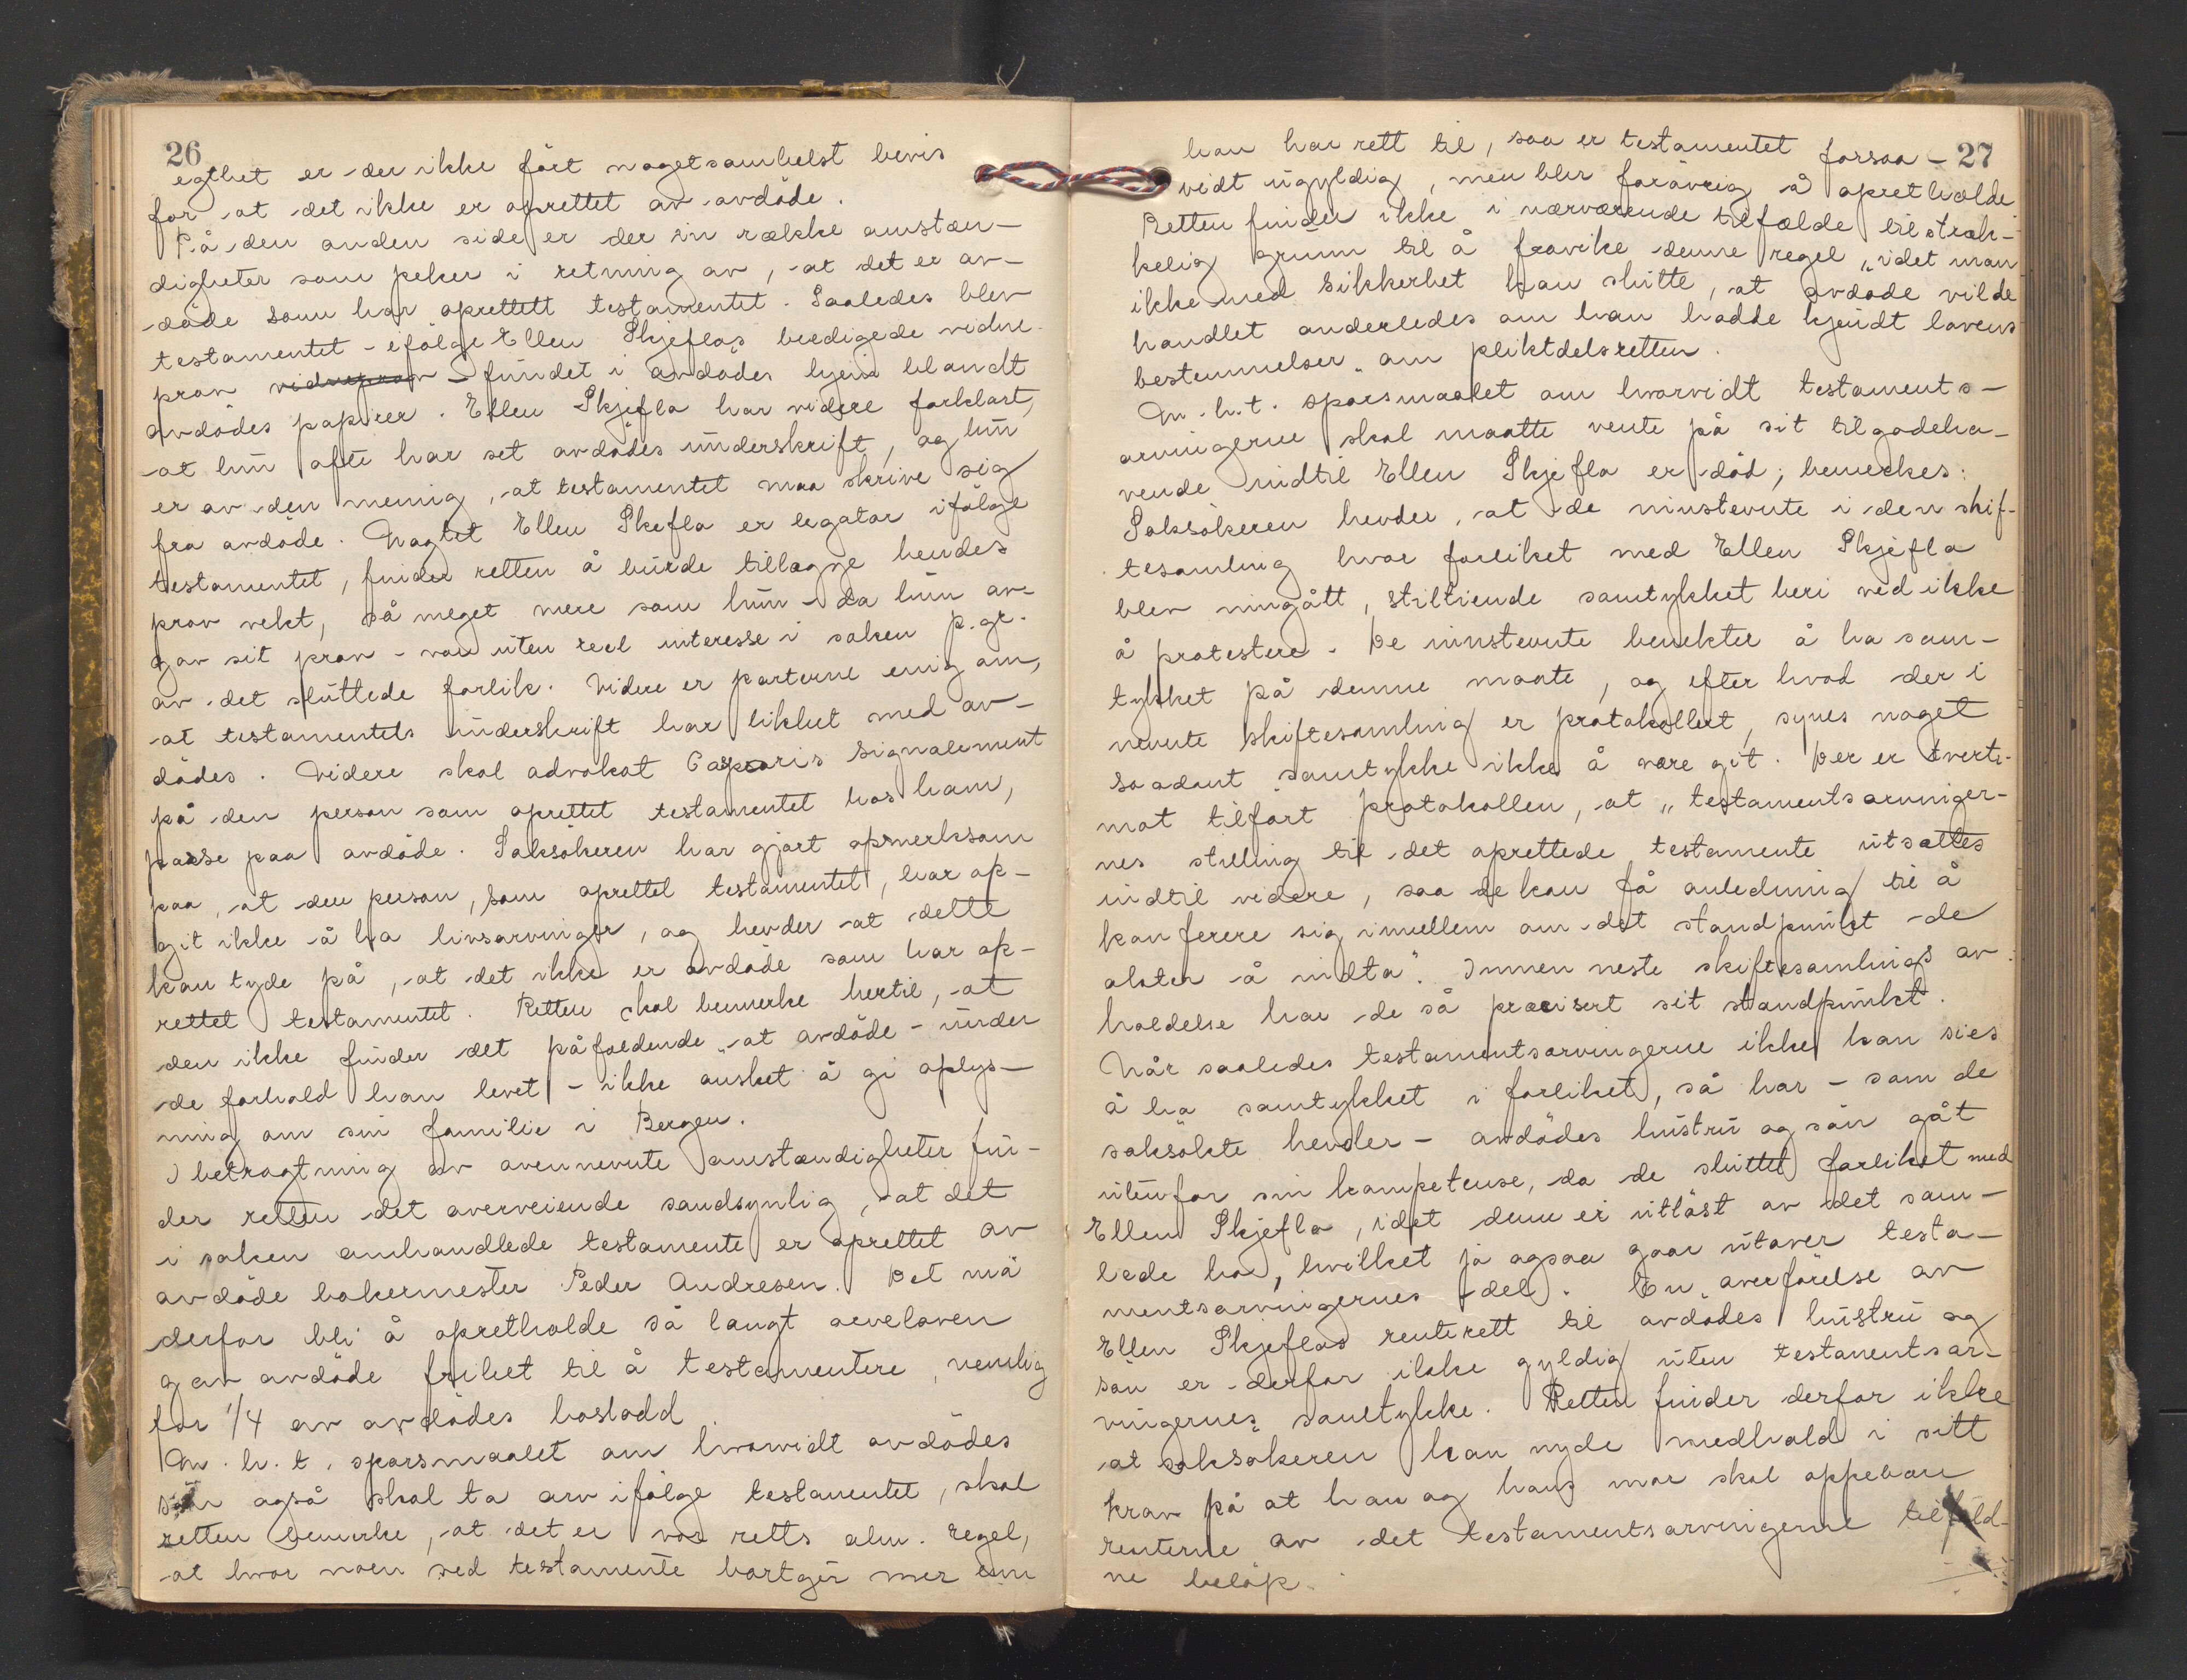 26
egthet er der ikke ført nogetsomhelst bevis
for at det ikke er oprettet av avdøde.
På den anden side er der en række omstæn-
digheter som peker i retning av, at det er av-
døde som har oprettett testamentet. Saaledes blev
testamentet - ifølge Ellen Skjeflos beedigede vidne-
prov vidneprov - fundet i avdødes hjem blandt
avdødes papirer. Ellen Skjeflo har videre forklart,
at hun ofte har set avdødes underskrift, og hun
er av den mening, at testamentet maa skrive sig
fra avdøde. Uagtet Ellen Skeflo er legatar ifølge
testamentet, finder retten å burde tillægge hendes
prov vekt, så meget mere som hun - da hun av-
gav sit prov - var uten reel interesse i saken p.gr.
av det sluttede forlik. Videre er parterne enig om,
at testamentets underskrift har likhet med av-
dødes. Videre skal advokat Casparis signalement
på den person som oprettet testamentet hos ham,
passe paa avdøde. Saksøkeren har gjort opmerksom
paa, at den person, som oprettet testamentet, har op-
git ikke å ha livsarvinger, og hevder at dette
kan tyde på, at det ikke er avdøde som har op-
rettet testamentet. Retten skal bemerke hertil, at
den ikke finder det påfaldende, at avdøde - under
de forhold han levet - ikke ønsket å gi oplys-
ning om sin familie i Bergen.
I betragtning av ovennevnte omstændigheter fin-
der retten det overveiende sandsynlig, at det
i saken omhandlede testamente er oprettet av
avdøde bakermester Peder Andresen. Det må
derfor bli å opretholde så langt arveloven
gav avdøde frihet til å testamentere, nemlig
for 1/4 av avdødes boslodd.
M.h.t. spørsmaalet om hvorvidt avdødes
søn også skal ta arv ifølge testamentet, skal
retten bemerke, at det er vor retts alm. regel,
at hvor noen ved testamente bortgir mer enn
27
han har rett til, saa er testamentet forsaa-
vidt ugyldig, men blir forøvrig å opretholde
Retten finder ikke i nærværende tilfælde tilstræk-
kelig grunn til å fravike denne regel, idet man
ikke med sikkerhet kan slutte, at avdøde vilde
handlet anderledes om han hadde kjendt lovens
bestemmelser om pliktdelsretten.
M.h.t. spørsmaalet om hvorvidt testaments-
arvingerne skal maatte vente på sit tilgodeha-
vende indtil Ellen Skjeflo er død, bemerkes:
Saksøkeren hevder, at de innstevnte i den skif-
tesamling hvor forliket med Ellen Skjeflo
blev inngått, stiltiende samtykket heri ved ikke
å protestere. De innstevnte benekter å ha sam-
tykket på denne maate, og efter hvad der i
nevnte skiftesamling er protokollert, synes noget
saadant samtykke ikke å være git. Der er tverti-
mot tilført protokollen, at "testamentsarvinger-
nes stilling til det oprettede testamente utsættes
indtil videre, saa de kan få anledning til å
konferere sig imellem om det standpunkt de
akter å indta". Innen neste skiftesamlings av-
holdelse har de så præcisert sit standpunkt.
Når saaledes testamentsarvingerne ikke kan sies
å ha samtykket i forliket, så har - som de
saksøkte hevder - avdødes hustru og søn gåt
utenfor sin kompetense, da de sluttet forliket med
Ellen Skjeflo, idet denne er utløst av det sam-
lede bo, hvilket jo ogsaa gaar utover testa-
mentsarvingernes del. En overførelse av
Ellen Skjeflos renterett til avdødes hustru og
søn er derfor ikke gyldig uten testamentsar-
vingernes samtykke. Retten finder derfor ikke
at saksøkeren kan nyde medhold i sitt
krav på at han og hans mor skal oppebære
renterne av det testamentsarvingerne tilfald-
ne beløp.